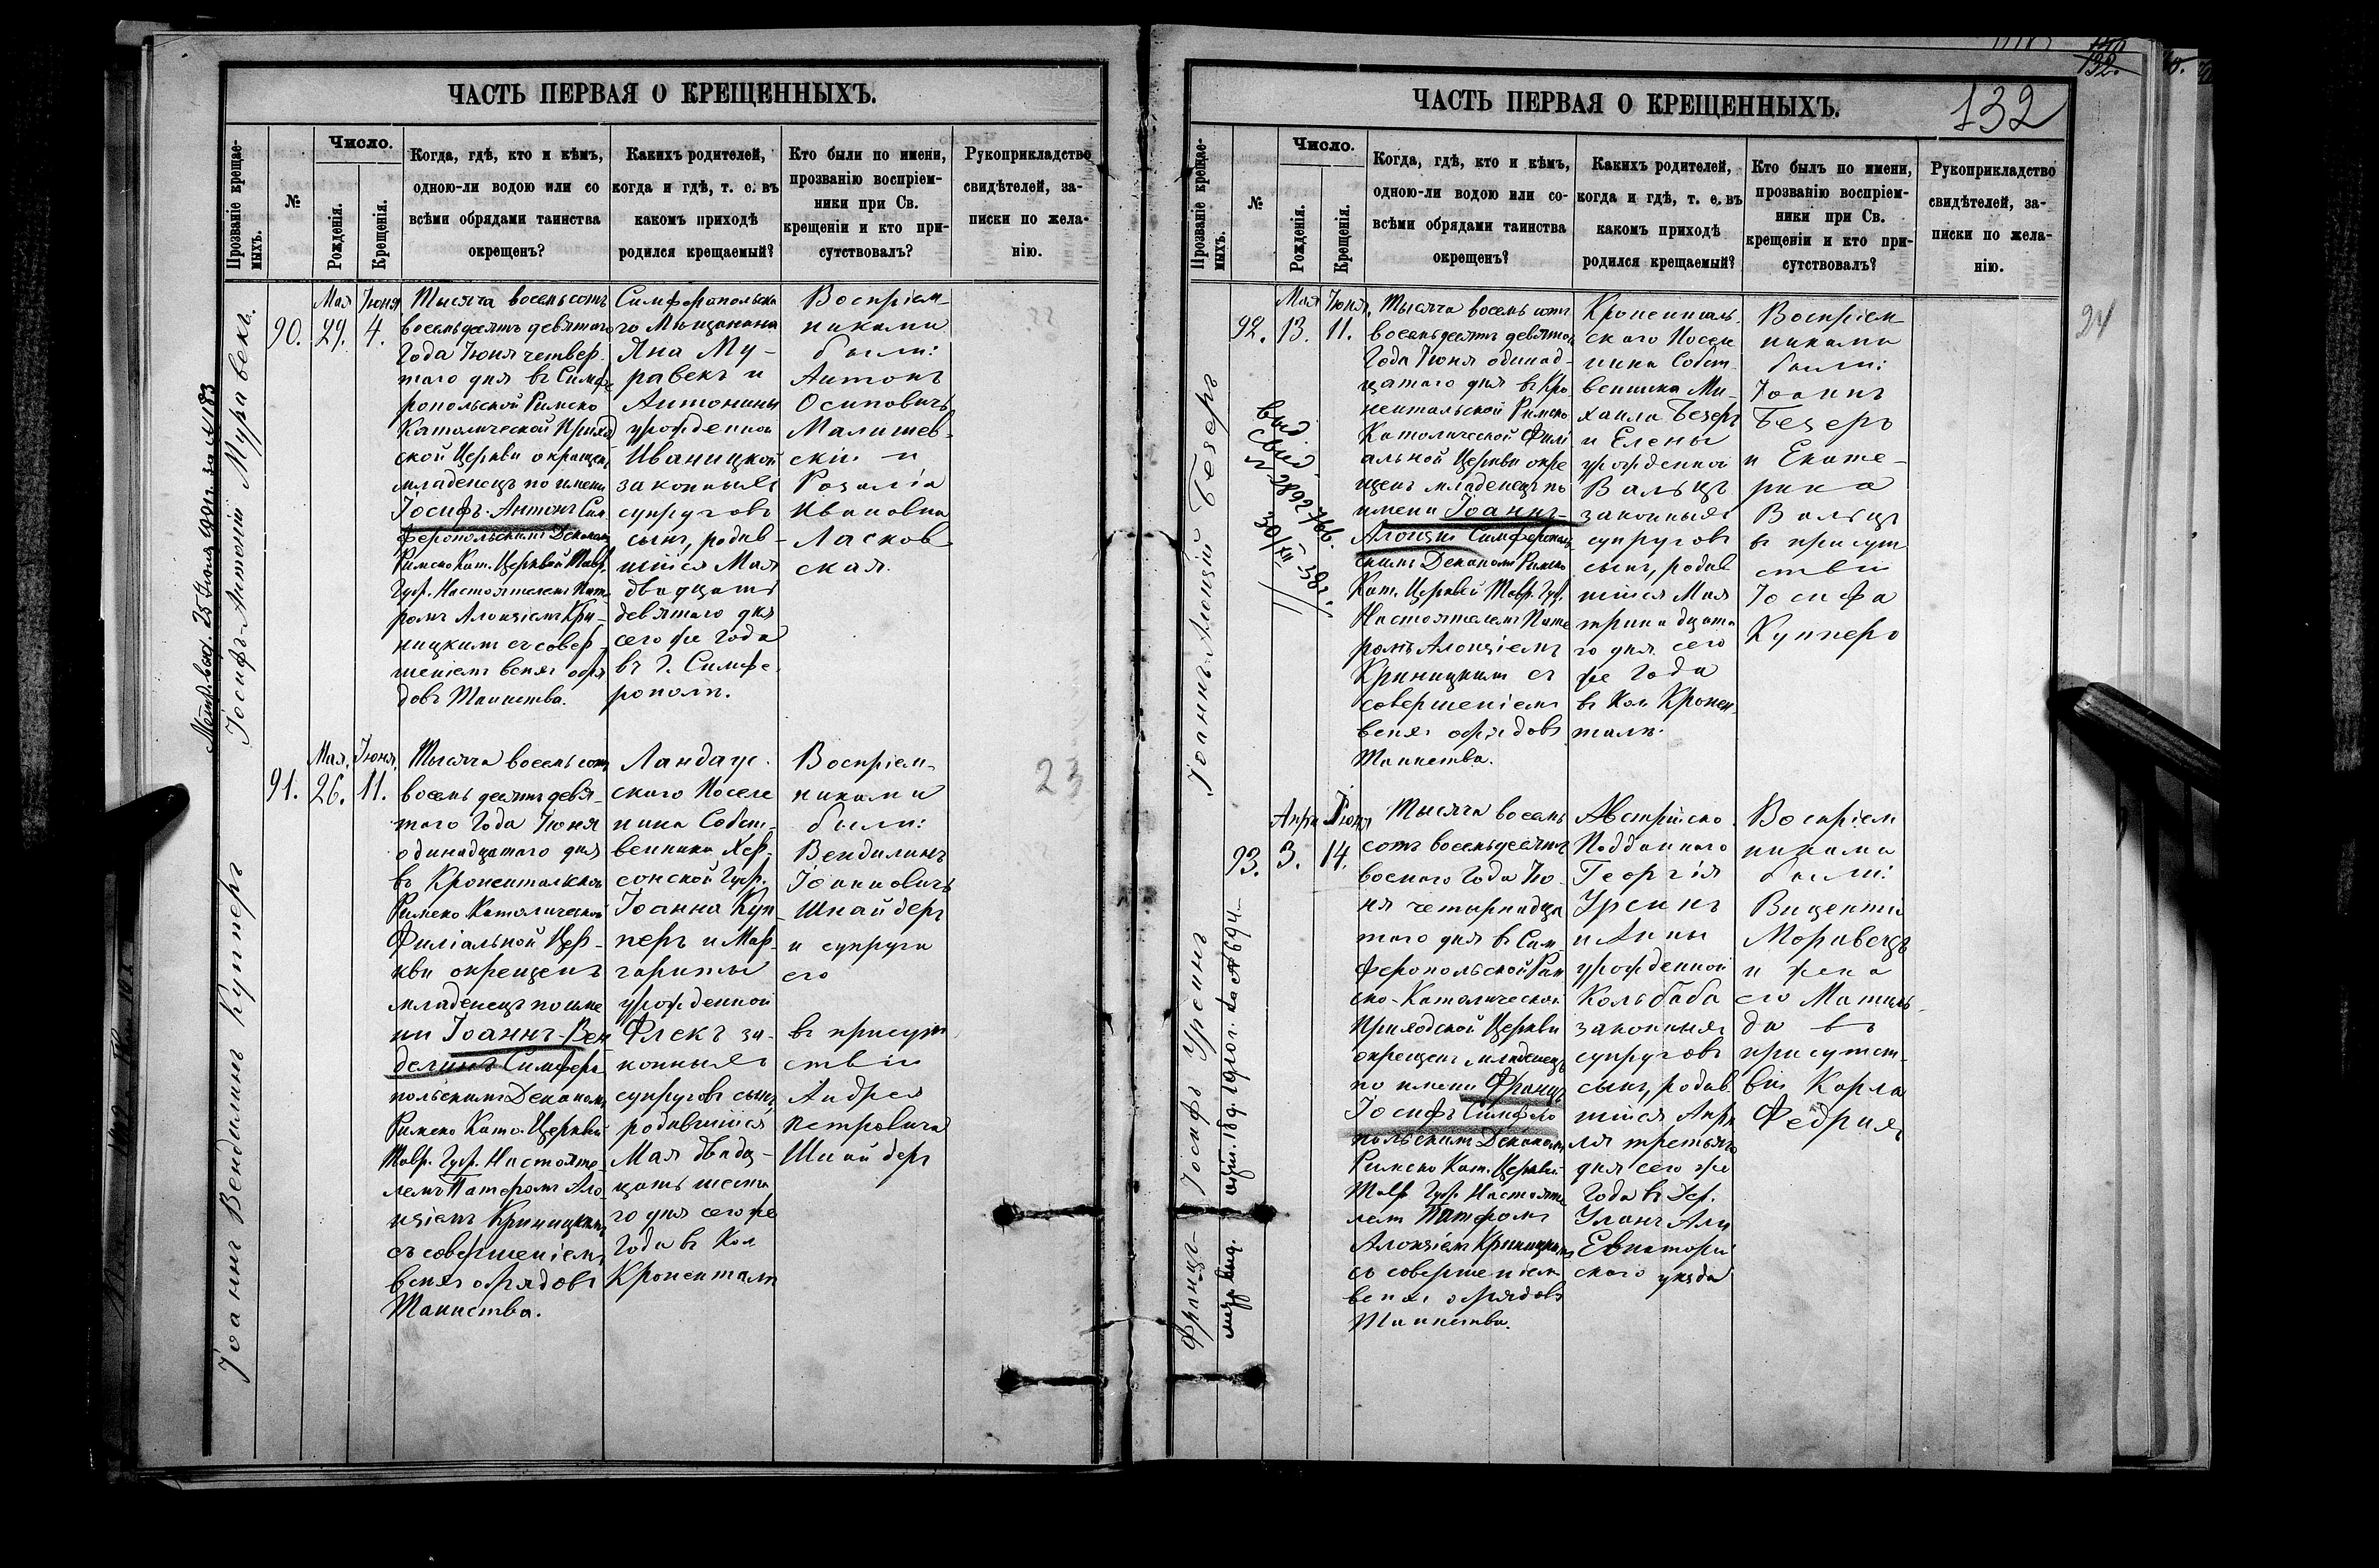 ЧАСТЬ ПЕРВАЯ О КРЕЩЕННЫХЪ.
Прозваніе крещае-
мыхъ.
№
Число.
Рожденія.
Крещенія.
Когда, гдѣ, кто и кѣмъ,
одною-ли водою или со
всѣми обрядами таинства
окрещенъ?
Какихъ родителей,
когда и гдѣ, т. е. въ
какомъ приходѣ
родился крещаемый?
Кто были по имени,
прозванію воспріем-
ники при Св.
крещеніи и кто при-
сутствовалъ?
Рукоприкладство
свидѣтелей, за-
писки по жела-
нію.
Іосифъ-Антоній Муравекъ.
90.
Мая
29.
Іюня
4.
Тысяча восемьсотъ
восемьдесятъ девятаго
Года Іюня четвер-
таго дня въ Симфе
ропольской Римско
Католической Приход
ской Церкви окрещенъ
младенецъ по имени
Іосифъ-Антонъ Сим
феропольскимъ Деканомъ
Римско Кат. Церквей Тавр.
Губ. Настоятелемъ Пате
ромъ Алоизіемъ Кри-
ницкимъ съ совер-
шеніемъ всѣхъ обря
довъ Таинства.
Симферопольска
го Мѣщанина
Яна Му-
равекъ и
Антонины
урожденной
Иваницкой
законныхъ
супруговъ
сынъ, родив-
шійся Мая
двадцать
девятаго дня
сего же Года
въ г. Симфе-
рополѣ.
Воспріем-
никами
были:
Антонъ
Осиповичъ
Малишев-
скій и
Розалія
Ивановна
Ласков
ская.
Іоаннъ Вендилинъ Купперъ
91.
Мая.
26.
Іюня.
11.
Тысяча восемьсотъ
восемьдесятъ девя-
таго Года Іюня
одинадцатаго дня
въ Кронентальской
Римско Католической
Филіальной Цер-
кви окрещенъ
младенецъ по име
ни Іоаннъ-Вен
делинъ Симферо
польскимъ Деканомъ
Римско Като. Церквей
Тавр. Губ. Настояте-
лемъ Патеромъ Ало-
изіемъ Криницкимъ
съ совершеніемъ
всѣхъ обрядовъ
Таинства.
Ландаус-
скаго Поселе
нина Собст-
венника Хер-
сонской Губ.
Іоанна Куп-
перъ и Мар-
гариты
урожденной
Флекъ за-
конныхъ
супруговъ сынъ,
родившійся
Мая двадц-
цать шеста
го дня сего же
Года въ Кол.
Кроненталь
Воспріем-
никами
были:
Вендилинъ
Іоанновичъ
Шнайдеръ
и супруга
его
въ присут
ствіи
Андрея
Петровича
Шнайдеръ
23
ЧАСТЬ ПЕРВАЯ О КРЕЩЕННЫХЪ.
132
Прозваніе крещае-
мыхъ.
№
Число.
Рожденія.
Крещенія.
Когда, гдѣ, кто и кѣмъ,
одною-ли водою или со-
всѣми обрядами таинства
окрещенъ?
Какихъ родителей,
когда и гдѣ, т. е. въ
какомъ приходѣ
родился крещаемый?
Кто былъ по имени,
прозванію воспріем-
ники при Св.
крещеніи и кто при-
сутствовалъ?
Рукоприкладство
свидѣтелей, за-
писки по жела-
нію.
24
Іоаннъ-Алоизій Безеръ
92.
Мая
13.
Іюня.
11.
Тысяча восемь сотъ
восемьдесятъ девятаго
Года Іюня одинад-
цатаго дня въ Кро
нентальской Римско
Католической Фили
альной Церкви окре
щенъ младенецъ по
имени Іоаннъ-
Алоизій Симферополь
скимъ Деканомъ Римско
Кат. Церквей Тавр. Губ.
Настоятелемъ Пате
ромъ Алоизіемъ
Криницкимъ съ
совершеніемъ
всѣхъ обрядовъ
Таинства.
Кроненталь-
скаго Поселе
нина Собст-
венника Ми-
хаила Безеръ
и Елены
урожденной
Вальцъ
законныхъ
супруговъ
сынъ, родив
шійся Мая
тринадцата
го дня сего
же Года
въ Кол. Кронен
талѣ.
Воспріем
никами
были:
Іоаннъ
Безеръ
и Екате-
рина
Вальцъ
въ присут
ствіи
Іосифа
Купперъ
Францъ-Іосифъ Урсинъ
93.
Апрѣ
3.
Іюня
14.
Тысяча восемь
сотъ восемьдесятъ
восмаго Года Ію-
ня четырнадца
таго дня въ Сим-
феропольской Рим
ско-Католической
Приходской Церкви
окрещенъ младенецъ
по имени Францъ
Іосифъ Симферо
польскимъ Деканомъ
Римско Кат. Церквей
Тавр. Губ. Настояте
лемъ Патеромъ
Алоизіемъ Криницкимъ
съ совершеніемъ
всѣхъ обрядовъ
Таинства.
Австрійско
Подданнаго
Георгія
Урсинъ
и Анны
урожденной
Кольбаба
законныхъ
супруговъ
сынъ, родив
шійся Апрѣ
ля третьяго
дня сего же
Года въ Дер.
Уланъ Али
Евпаторій
скаго уѣзда
Воспріем
никами
были:
Вицентій
Моравецъ
и жена
его Матиль-
да въ
присутст-
віи Карла
Федрихъ